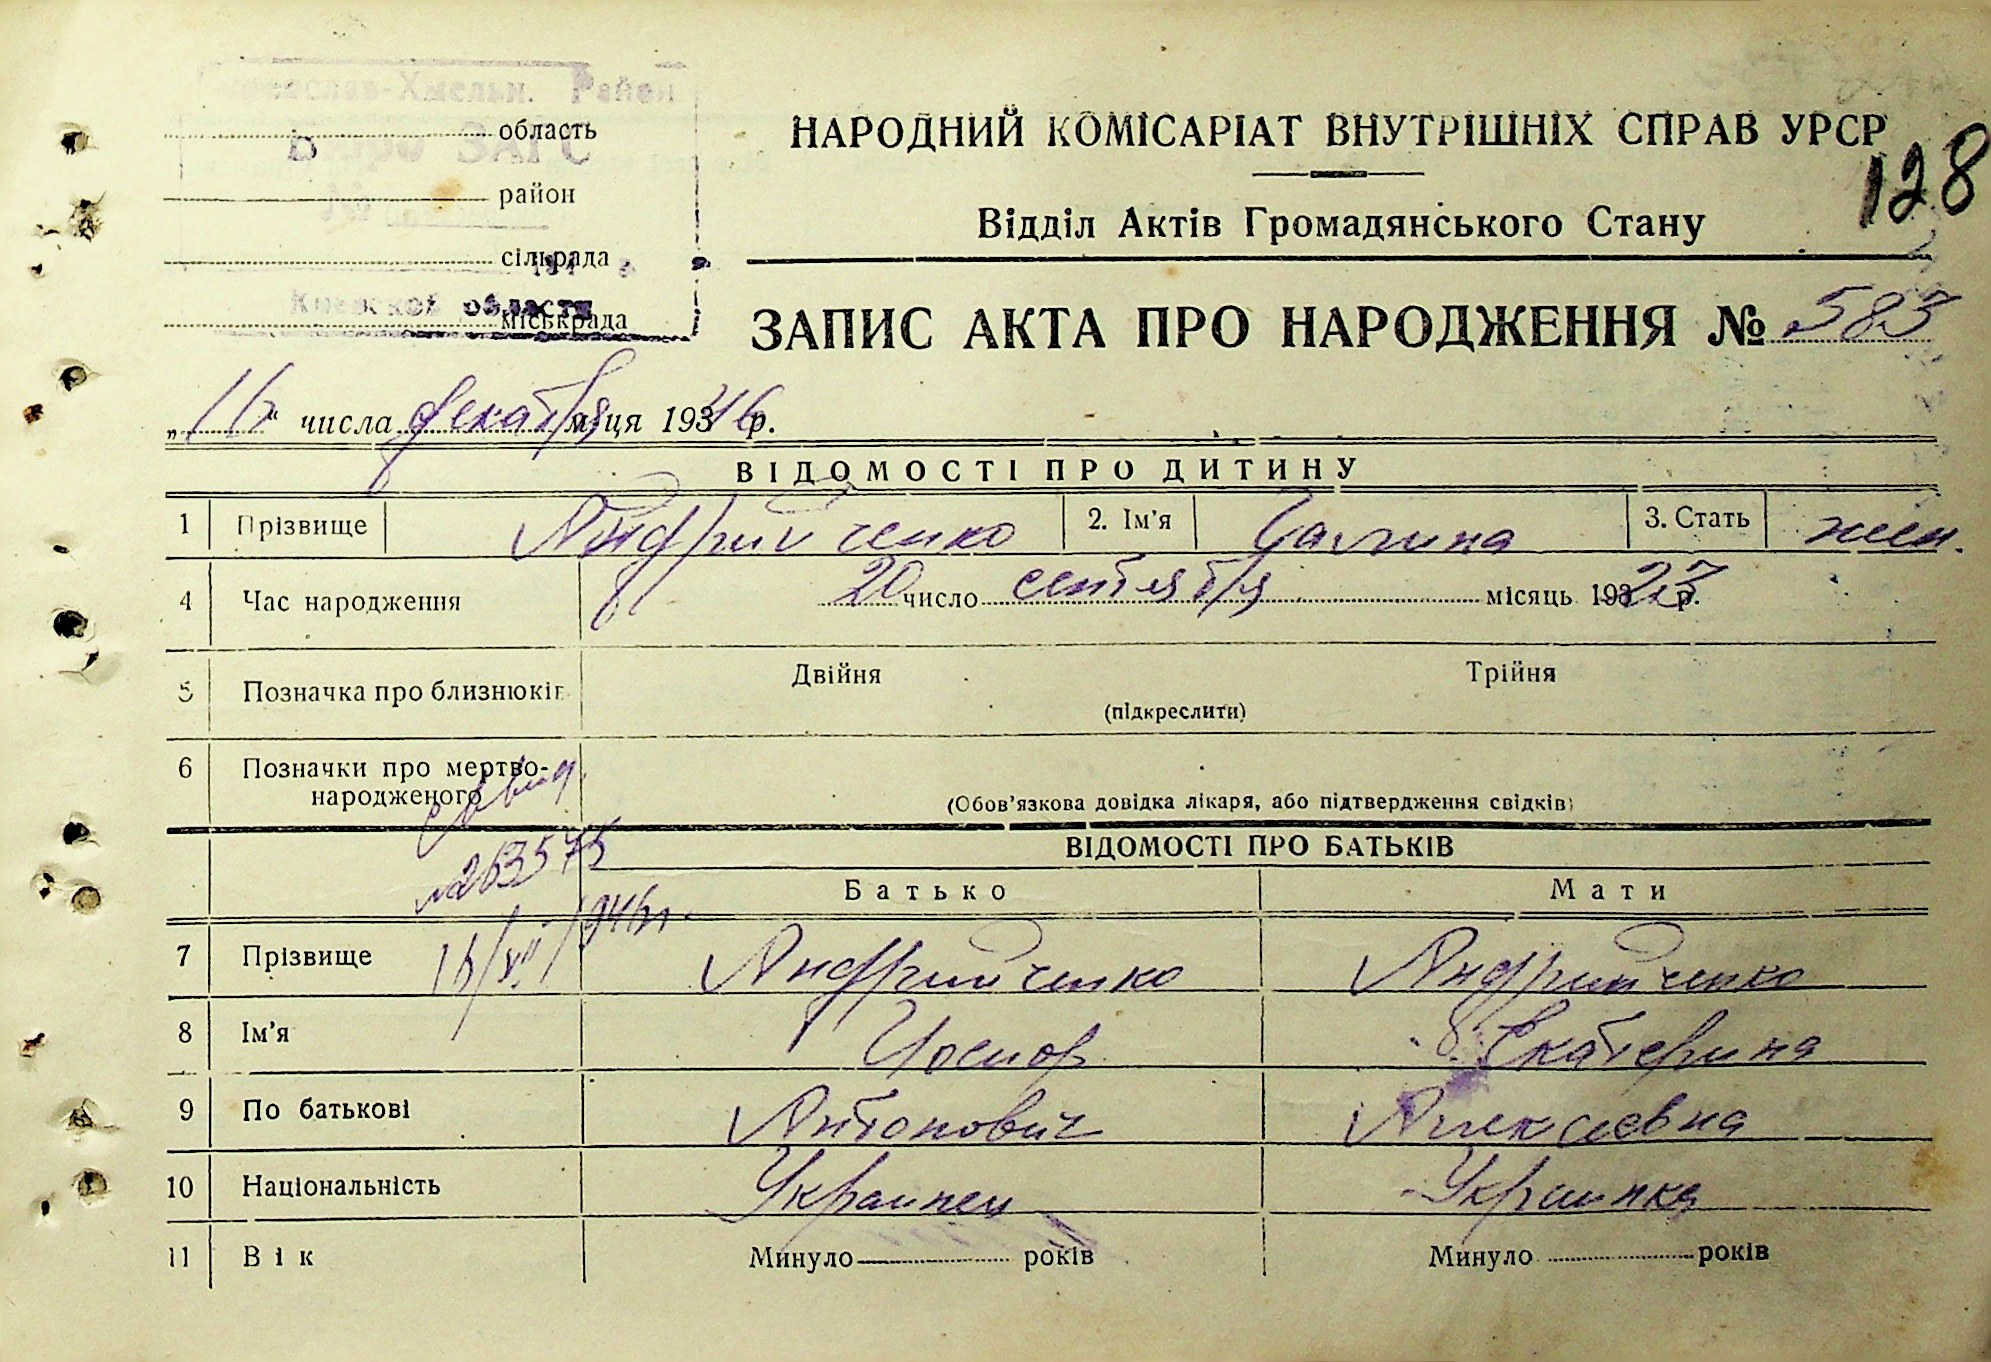 Хмельн. Район
Бюро ЗАГС
Киевской области
область
район
сільрада
міськрада
НАРОДНИЙ КОМІСАРІАТ ВНУТРІШНІХ СПРАВ УРСР
128
Відділ Актів Громадянського Стану
ЗАПИС АКТА ПРО НАРОДЖЕННЯ № 583
„16“ числа декабря м-ця 1946 р.
ВІДОМОСТІ ПРО ДИТИНУ
1 Прізвище Андрийченко 2. Ім'я Галина 3. Стать жен.
4 Час народження 20 число сентября місяць 1927 р.
5 Позначка про близнюків Двійня Трійня
(підкреслити)
6 Позначки про мертво-
народженого
(Обов'язкова довідка лікаря, або підтвердження свідків)
свид.
№263575
16/XII 1946 г.
ВІДОМОСТІ ПРО БАТЬКІВ
Батько Мати
7 Прізвище Андрийченко Андрийченко
8 Ім'я Иосиф Екатерина
9 По батькові Антонович Алексеевна
10 Національність Украинец Украинка
11 Вік Минуло років Минуло років